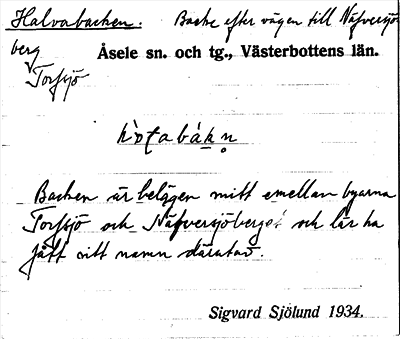 Halvabacken. Backe efter vägen till Näfversjö
berg
Torfsjö
Åsele sn. och tg., Västerbottens län.
Backen är belägen mitt emellan byarna
Torfsjö och Näfversjöberget och lär ha
fått sitt namn därutav.
Sigvard Sjölund 1934.